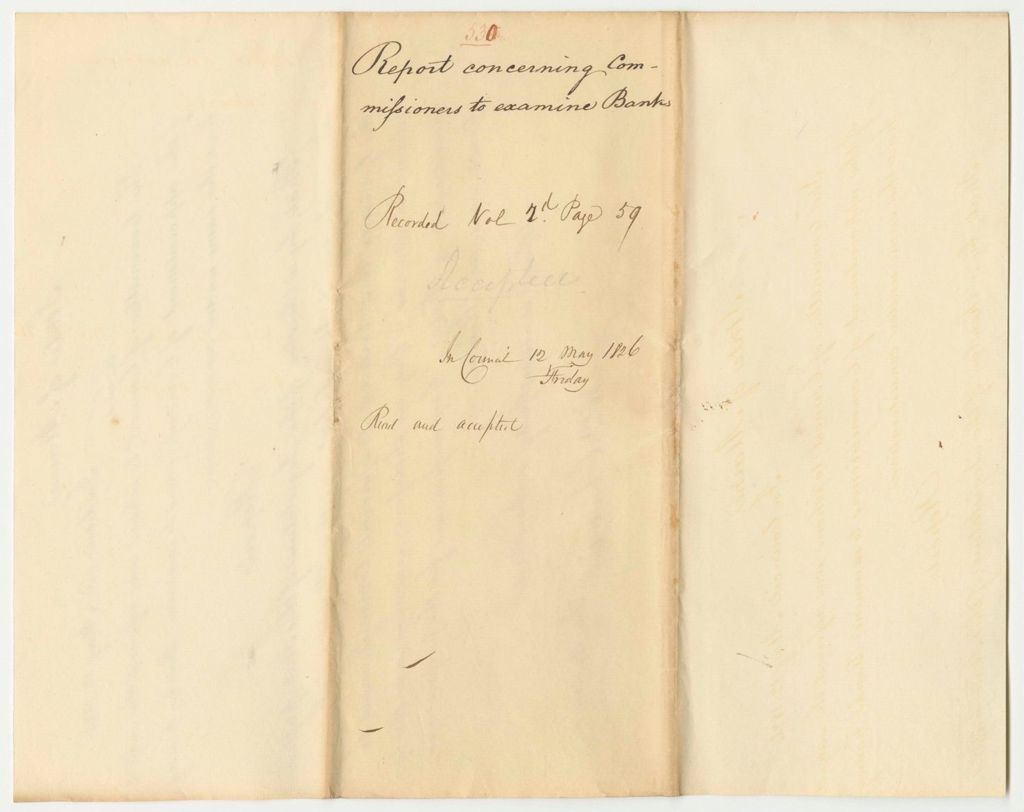 530
Report concerning Com-
missioners to examine Banks
Recorded Vol 2d. Page 59
Accepted
In Council 12 May 1826
Friday
Read and accepted